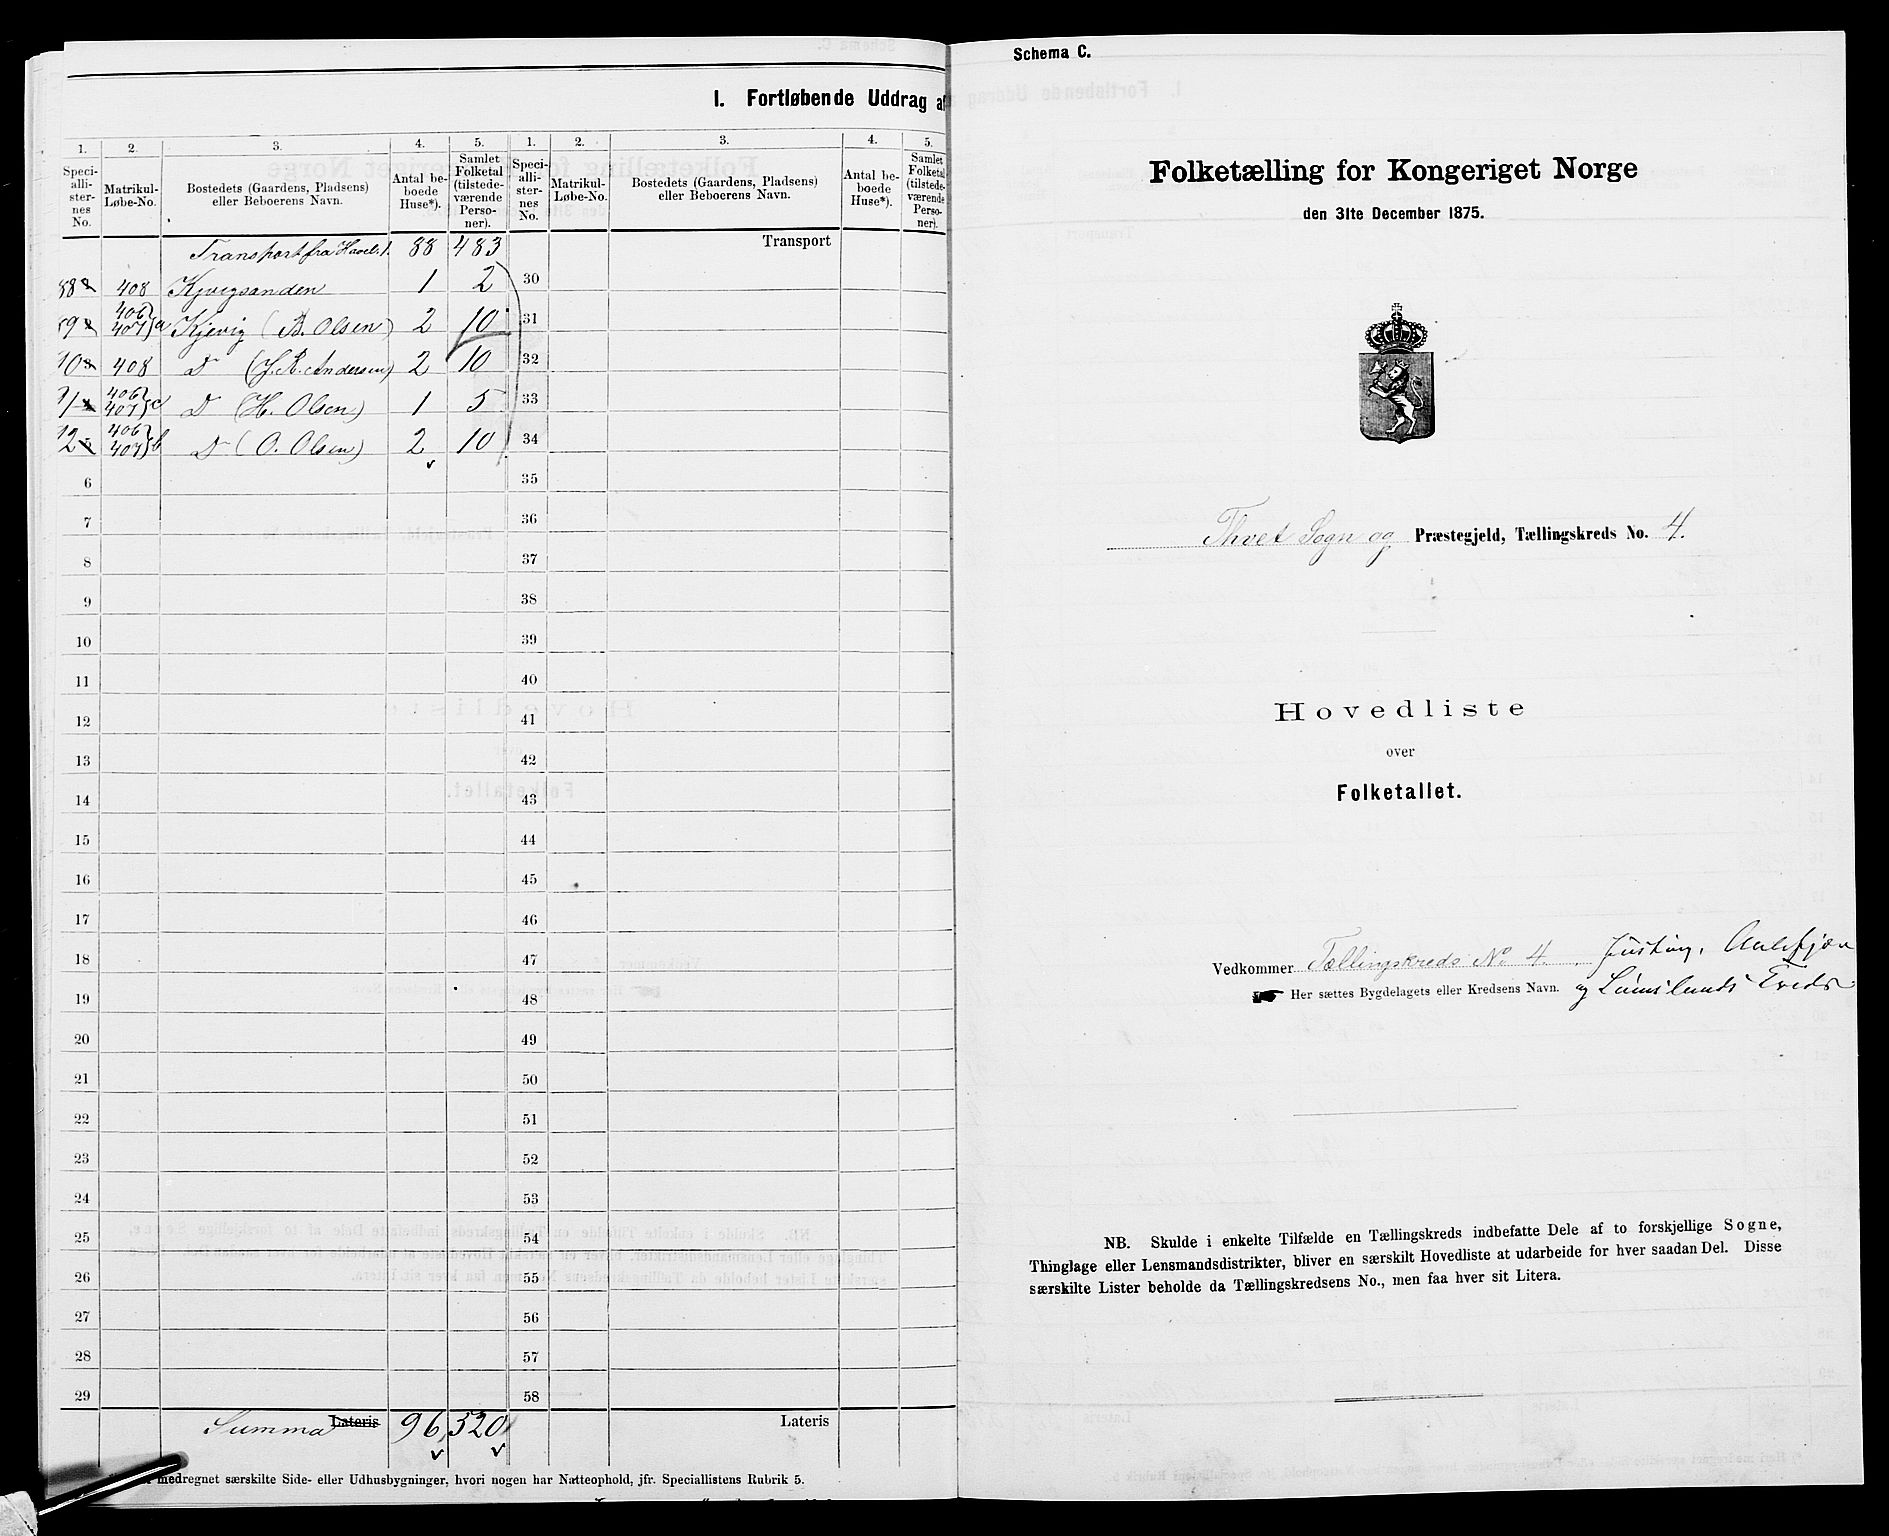 I. Fortløbende Uddrag af
1. 2. 3. 4. 5. 1. 2. 3. 4. 5.
Speciallisternes No. Matrikul-Løbe-No. Bostedets (Gaardens, Pladsens) eller Beboerens Navn. Antal beboede Huse*). Samlet Folketal (tilstedeværende Personer). Speciallisternes No. Matrikul-Løbe-No. Bostedets (Gaardens, Pladsens) eller Beboerens Navn. Antal beboede Huse*). Samlet Folketal (tilstedeværende Personer).
Transport fra 88 483 Transport
408 Kjevigsanden 1 2 30
406 407 a Kjevig (B. Olsen) 2 10 31
408 D (J. R. Andersen) 2 10 32
406 407 c D (H. Olsen) 1 5 33
406 407 b D (O. Olsen) 2 10 34
6 35
7 36
8 37
9 38
10 39
11 40
12 41
13 42
14 43
15 44
16 45
17 46
18 47
19 48
20 49
21 50
22 51
23 52
24 53
25 54
26 55
27 56
28 57
29 58
Summa Lateris 96 520 Lateris
medregnet særskilte Side- eller Udhusbygninger, hvori nogen har Natteophold, jfr. Speciallistens Rubrik 5.
Schema C.
Folketælling for Kongeriget Norge
den 31te December 1875.
Thvet Sogn og Præstegjeld, Tællingskreds No. 4.
Hovedliste
over
Folketallet.
Vedkommer Tællingskreds No. 4.
Her sættes Bygdelagets eller Kredsens Navn. og
NB. Skulde i enkelte Tilfælde en Tællingskreds indbefatte Dele af to forskjellige Sogne,
Thinglage eller Lensmandsdistrikter, bliver en særskilt Hovedliste at udarbeide for hver saadan Del. Disse
særskilte Lister beholde da Tællingskredsens No., men faa hver sit Litera.